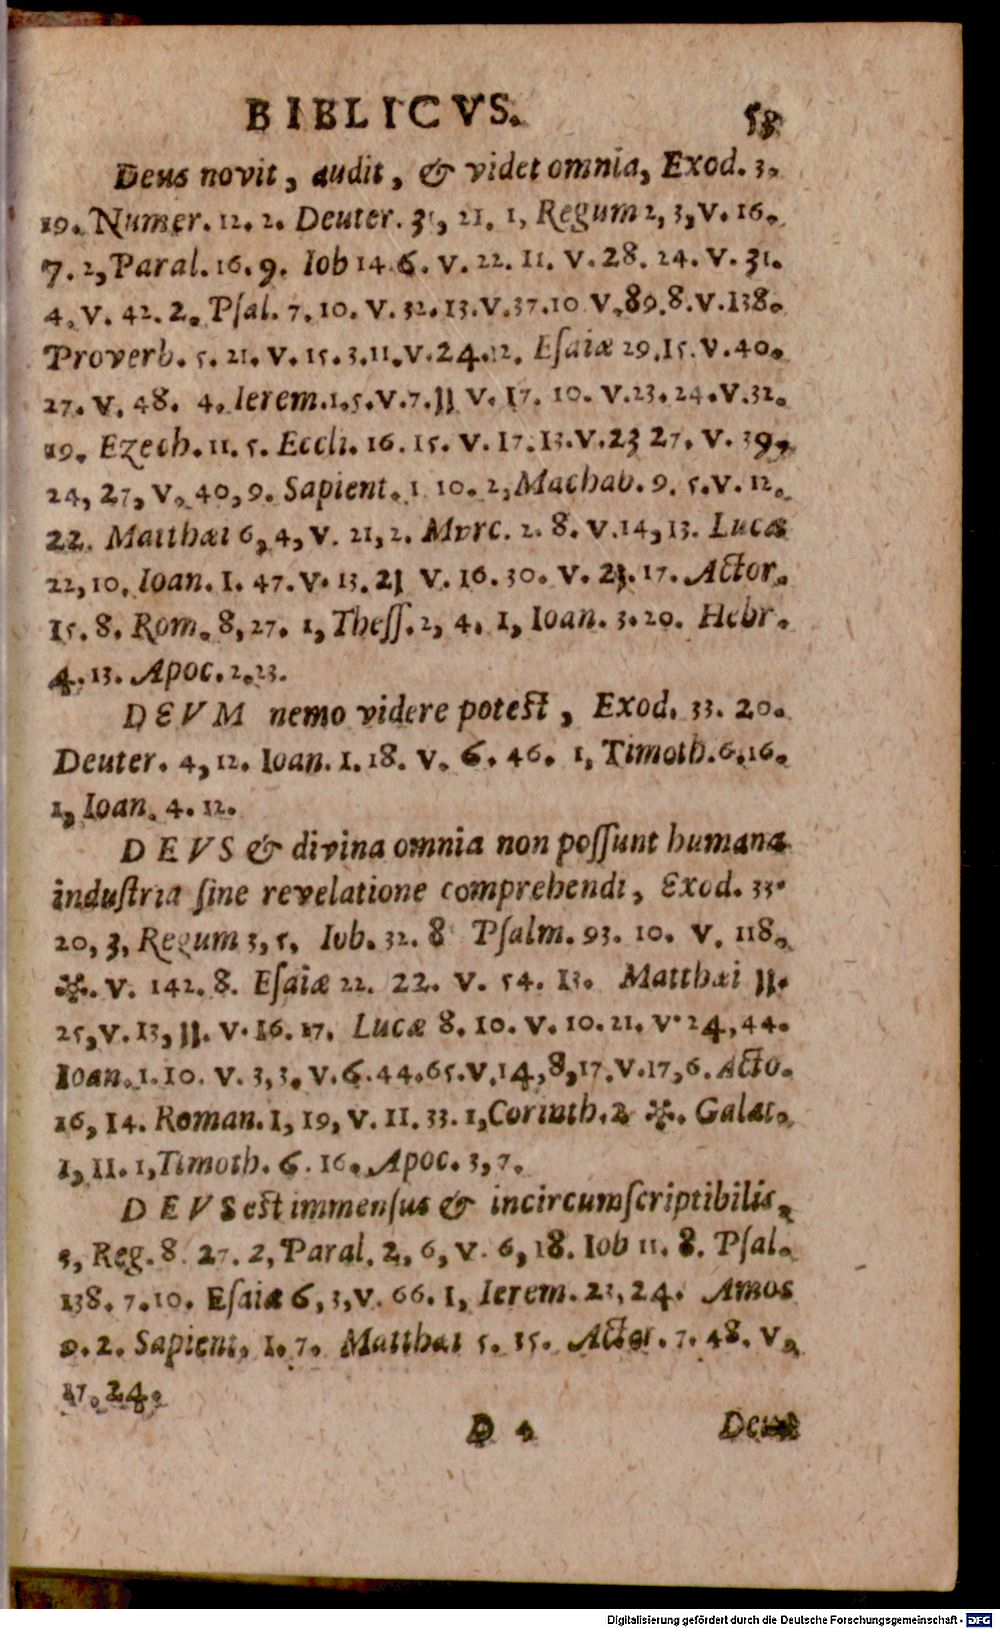 BIBLICVS. 58
Deus novit, audit, & videt omnia, Exod. 3.
19. Numer. 12. 2. Deuter. 31, 21. 1, Regum 2, 3, v. 16.
7. 2, Paral. 16. 9. Iob 14. 6. v. 22. 11. v. 28. 24. v. 31.
4. v. 42. 2. Pſal. 7. 10. v. 32. 13. v. 37. 10 v. 89. 8. v. 138.
Proverb. 5. 21. v. 15. 3. 11. v. 24. 12. Eſaiæ 29. 15. v. 40.
27. v. 48. 4. Ierem. 1. 5. v. 7. 11 v. 17. 10. v. 23. 24. v. 32.
19. Ezech. 11. 5. Eccli. 16. 15. v. 17. 13. v. 23 27. v. 39,
24, 27, v. 40, 9. Sapient. 1 10. 2, Machab. 9. 5. v. 12.
22. Matthæi 6, 4, v. 21, 2. Marc. 2. 8. v. 14, 13. Lucæ
22, 10. Ioan. 1. 47. v. 13. 21 v. 16. 30. v. 21. 17. Actor.
15. 8. Rom. 8, 27. 1, Theſſ. 2, 4. 1, Ioan. 3. 20. Hebr.
4. 13. Apoc. 2. 23.
DEVM nemo videre poteſt, Exod. 33. 20.
Deuter. 4, 12. Ioan. 1. 18. v. 6. 46. 1, Timoth. 6. 16.
1, Ioan. 4. 12.
DEVS & divina omnia non poſſunt humana
induſtria ſine revelatione comprehendi, Exod. 33.
20, 3, Regum 3, 5. Iob. 32. 8 Pſalm. 93. 10. v. 118.
✲. v. 142. 8. Eſaiæ 22. 22. v. 54. 13. Matthæi 11.
25, v. 13, 11. v. 16. 17. Lucæ 8. 10. v. 10. 21. v. 24, 44.
Ioan. 1. 10. v. 3, 3. v. 6. 44. 65. v. 14, 8, 17. v. 17, 6. Acto.
16, 14. Roman. 1, 19, v. 11. 33. 1, Corinth. 2 ✲. Galat.
1, 11. 1, Timoth. 6. 16. Apoc. 3, 7.
DEVS eſt immenſus & incircumſcriptibilis,
3, Reg. 8. 27. 2, Paral. 2, 6, v. 6, 18. Iob 11. 8. Pſal.
138. 7. 10. Eſaiæ 6, 3, v. 66. 1, Ierem. 23, 24. Amos
9. 2. Sapient. 1. 7. Matthæi 5. 35. Actor. 7. 48. v.
17. 24.
D Deus
Digitalisierung gefördert durch die Deutsche Forschungsgemeinschaft - DFG